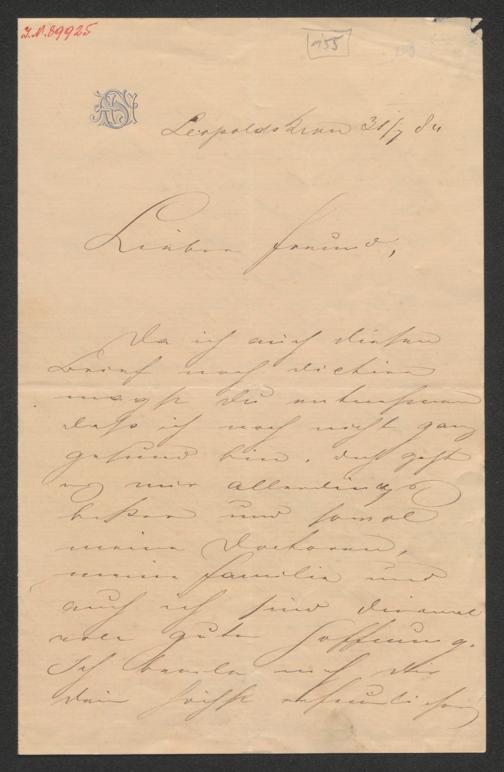 J.N. 89925
155
Leopoldskron 31/7 84
Lieber Freund,
Da ich auch diesen
Brief noch dictire
magst Du entnehmen
daß ich noch nicht ganz
gesund bin. doch geht
es mir allerdings
besser und sowol
meine Doctoren,
meine Familie und
auch ich sind diesmal
voll guter Hoffnung.
Ich beeile mich Dir
Dein höchst erfreuliches